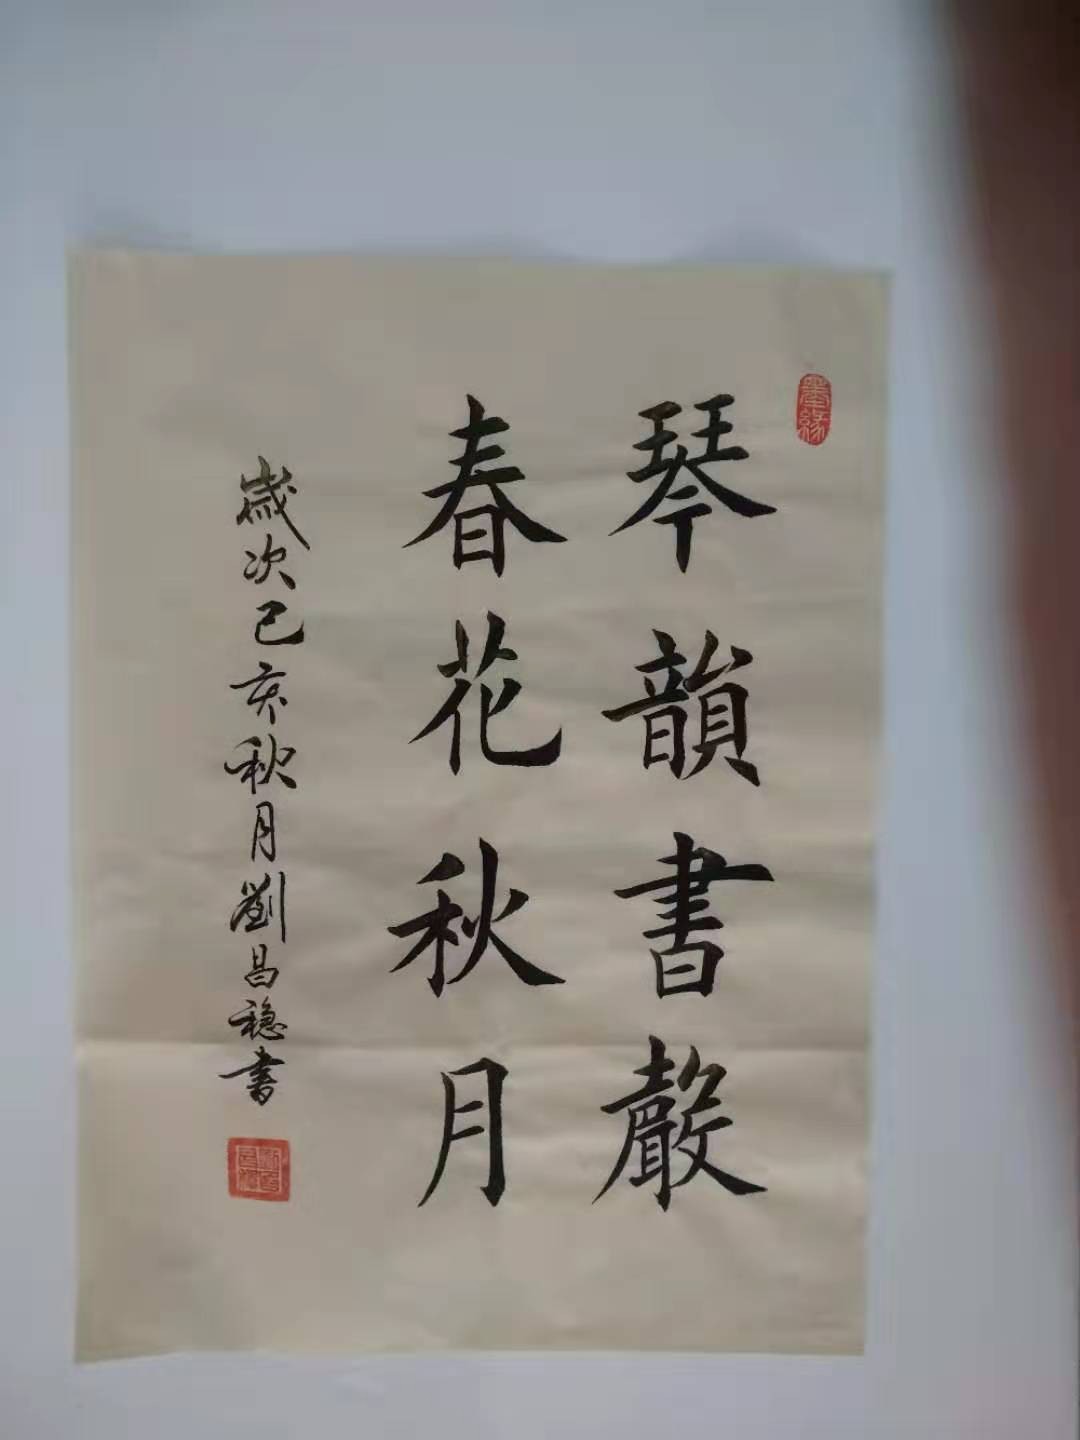 墨緣
琴韻書聲
春花秋月
歲次己亥秋月劉昌穩書